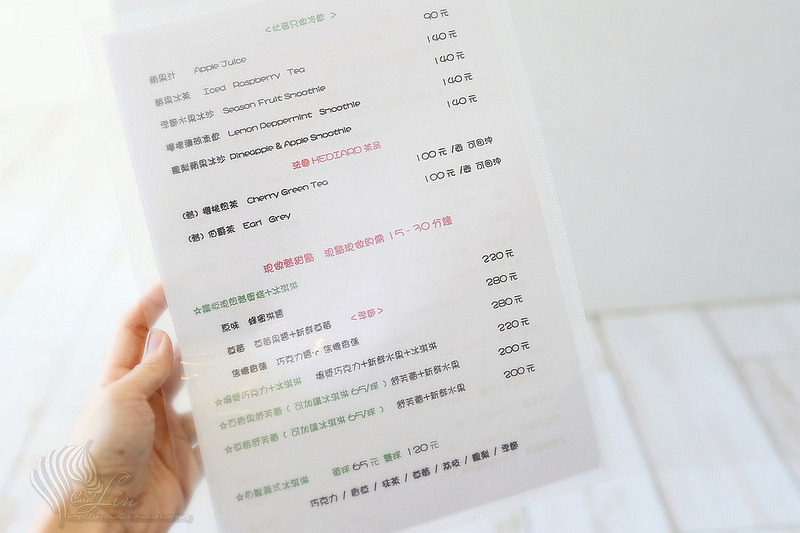 <此區只做冷飲>
蘋果汁 Apple Juice 90元
莓果冰茶 Iced Raspberry Tea 140元
季節水果冰沙 Season Fruit Smoothie 140元
檸檬薄荷冰飲 Lemon Peppermint Smoothie 140元
鳳梨蘋果冰沙 Pineapple & Apple Smoothie 140元
法國HEDIARD茶品
(熱) 櫻桃煎茶 Cherry Green Tea 100元/壺 可回沖
(熱) 伯爵茶 Earl Grey 100元/壺 可回沖
現做熱甜點 現點現做約需 15-30分鐘
☆鐵板現烤鬆餅+冰淇淋
原味 蜂蜜淋醬 220元
草莓 草莓果醬+新鮮草莓 <季節> 280元
焦糖香蕉 巧克力醬+焦糖香蕉 280元
☆爆漿巧克力+冰淇淋 爆漿巧克力+新鮮水果+冰淇淋 220元
☆百香果舒芙蕾(可加購冰淇淋65/球) 舒芙蕾+新鮮水果 200元
☆草莓舒芙蕾(可加購冰淇淋65/球) 舒芙蕾+新鮮水果 200元
☆自製義式冰淇淋 單球65元 雙球120元
巧克力/香草/抹茶/草莓/荔枝/鳳梨/季節
Lin